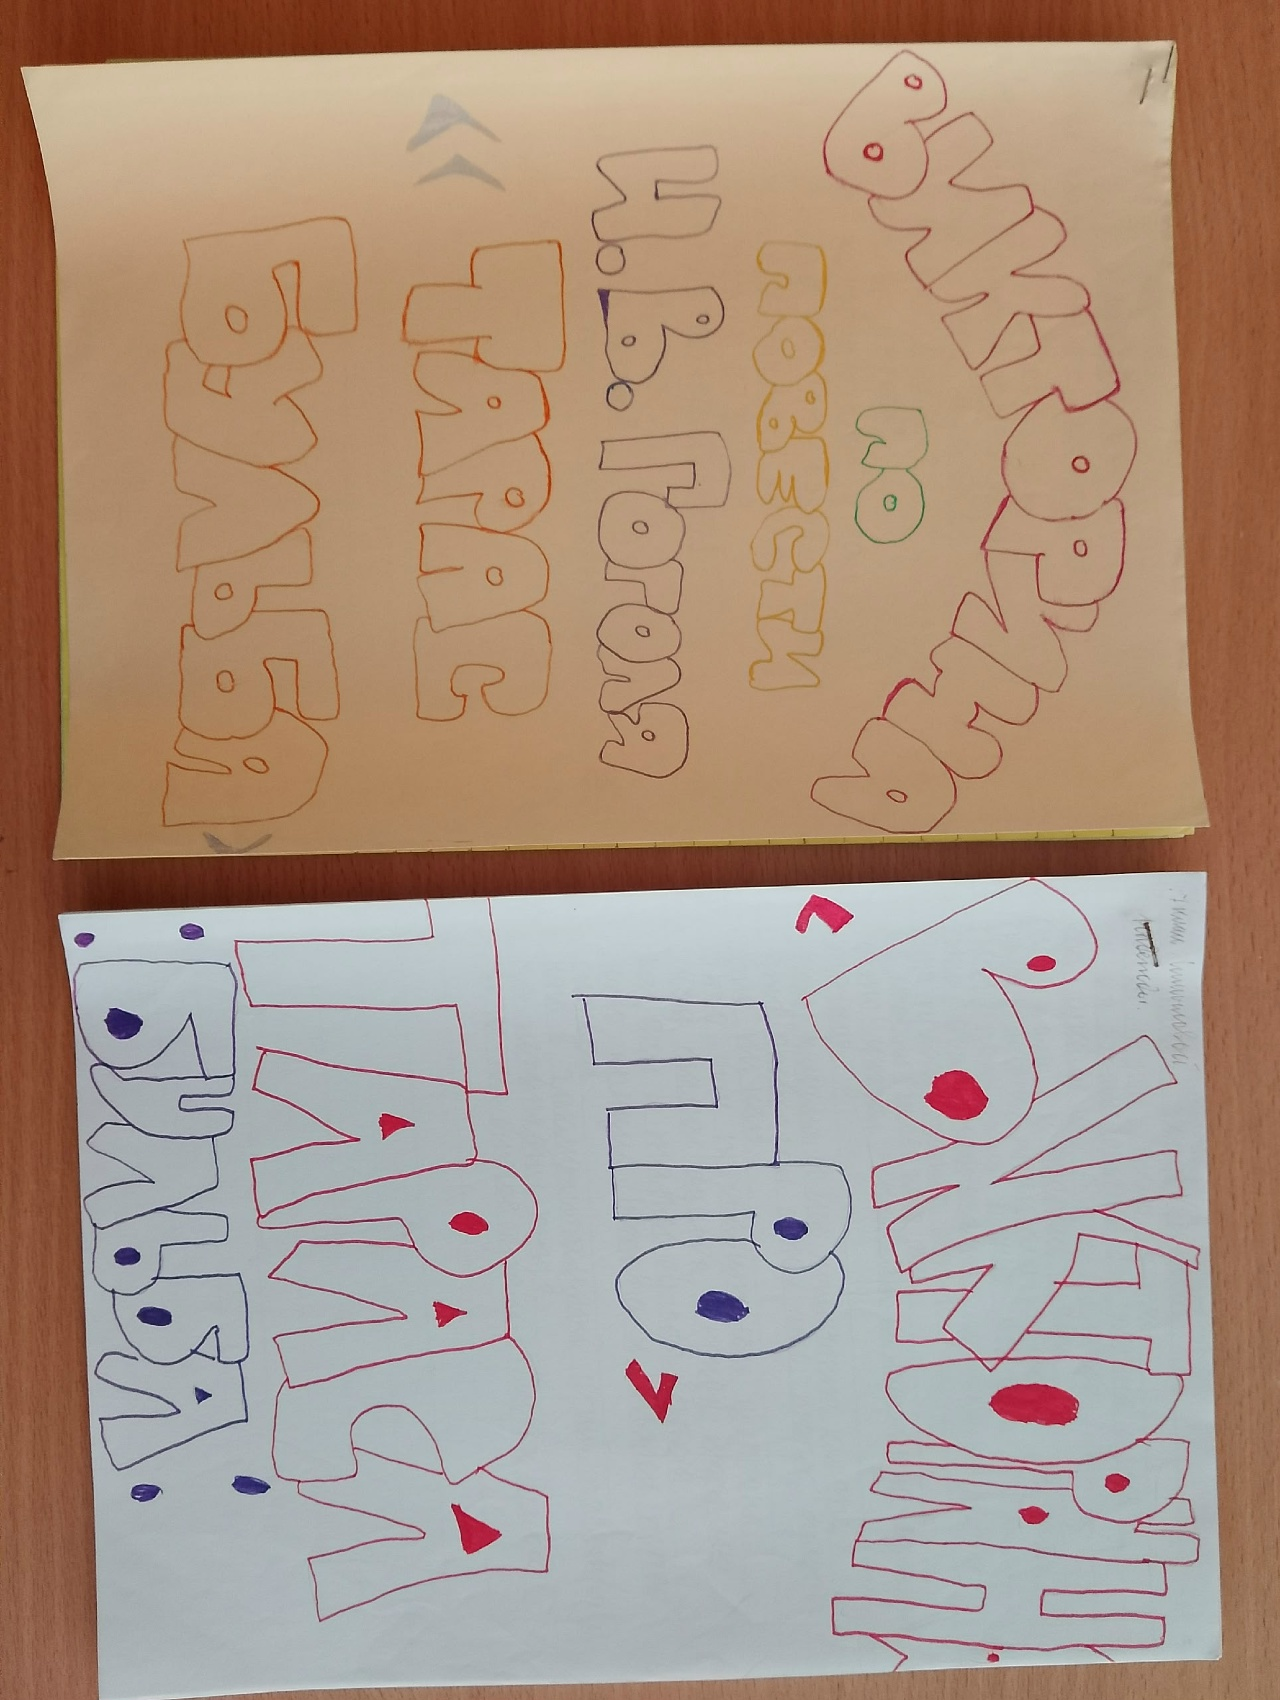 ВИКТОРИНА
ПО
ПОВЕСТИ
Н.В. ГОГОЛЯ
«ТАРАС
БУЛЬБА»
ВИКТОРИНА
ПРО
ТАРАСА
БУЛЬБА